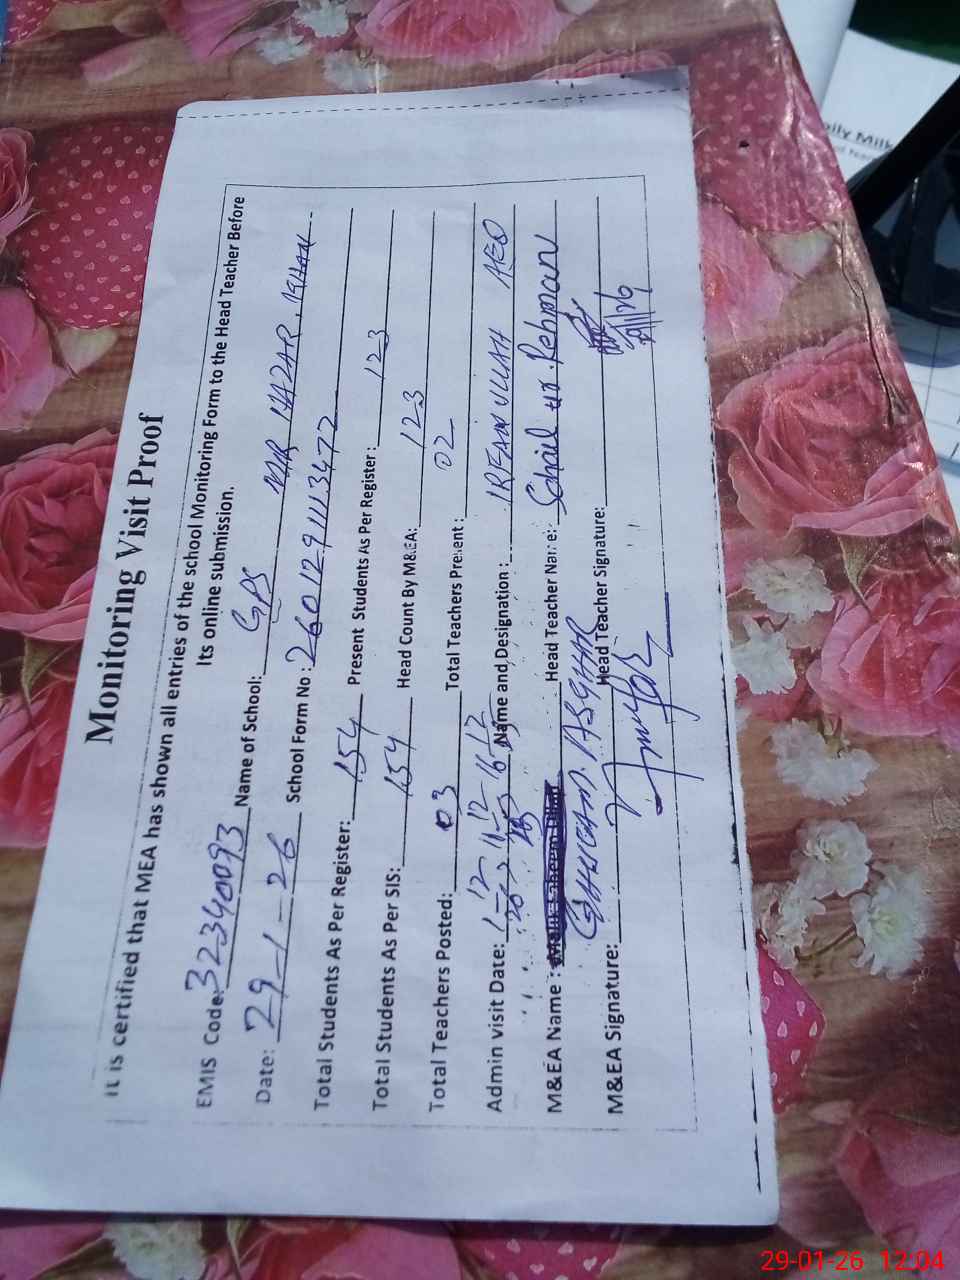 Monitoring Visit Proof
It is certified that MEA has shown all entries of the school Monitoring Form to the Head Teacher Before
Its online submission.
EMIS Code: 32340093 Name of School: GPS MIR HAZAR KHAN
Date: 29-1-26 School Form No: 2601291113477
Total Students As Per Register: 154 Present Students As Per Register: 123
Total Students As Per SIS: 154 Head Count By M&EA: 123
Total Teachers Posted: 03 Total Teachers Present: 02
Admin visit Date: Name and Designation: IRFAN ULLAH AEO
M&EA Name: GHULAM ASGHAR Head Teacher Name: Sohail ur Rehman
M&EA Signature: Head Teacher Signature:
29/1/26
29-01-26 12:04